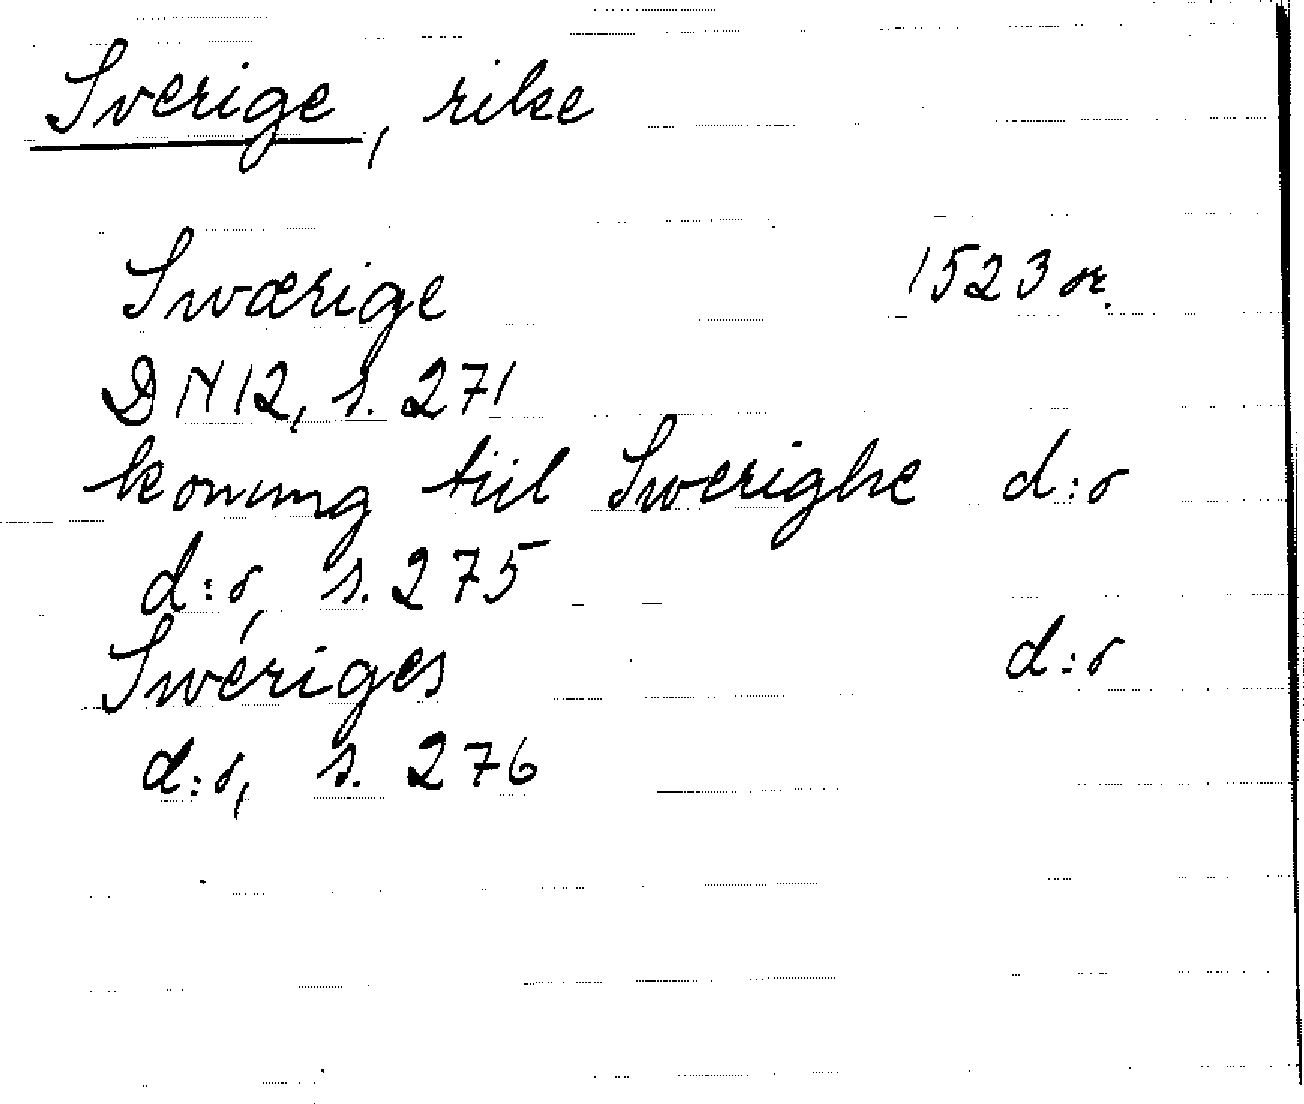 Sverige, rike
Swærige 1523 or.
DN 12, s. 271
konung tiil Swerighe d:o
d:o, s. 275
Sweriges d:o
d:o, s. 276